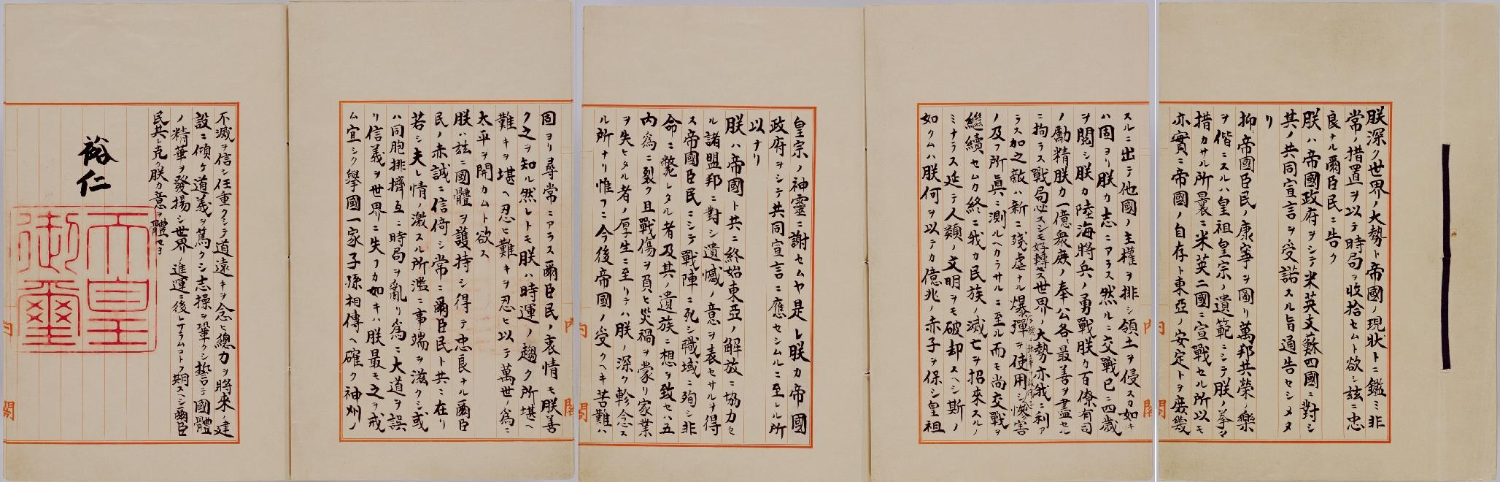 朕深ク世界ノ大勢ト帝國ノ現狀トニ鑑ミ非
常ノ措置ヲ以テ時局ヲ收拾セムト欲シ茲ニ忠
良ナル爾臣民ニ告ク
朕ハ帝國政府ヲシテ米英支蘇四國ニ對シ
其ノ共同宣言ヲ受諾スル旨通告セシメタ
リ
抑〻帝國臣民ノ康寧ヲ圖リ萬邦共榮ノ樂
ヲ偕ニスルハ皇祖皇宗ノ遺範ニシテ朕ノ拳〻
措カサル所曩ニ米英二國ニ宣戰セル所以モ
亦實ニ帝國ノ自存ト東亞ノ安定トヲ庶幾
内閣
スルニ出テ他國ノ主權ヲ排シ領土ヲ侵スカ如キ
ハ固ヨリ朕カ志ニアラス然ルニ交戰已ニ四歲
ヲ閱シ朕カ陸海將兵ノ勇戰朕カ百僚有司
ノ勵精朕カ一億衆庶ノ奉公各〻最善ヲ盡セル
ニ拘ラス戰局必スシモ好轉セス世界ノ大勢亦我ニ利ア
ラス加之敵ハ新ニ殘虐ナル爆彈ヲ使用シテ頻ニ無辜ヲ殺傷シ慘害
ノ及フ所眞ニ測ルヘカラサルニ至ル而モ尚交戰ヲ
繼續セムカ終ニ我カ民族ノ滅亡ヲ招來スルノ
ミナラス延テ人類ノ文明ヲモ破却スヘシ斯ノ
如クムハ朕何ヲ以テカ億兆ノ赤子ヲ保シ皇祖
皇宗ノ神靈ニ謝セムヤ是レ朕カ帝國
政府ヲシテ共同宣言ニ應セシムルニ至レル所
以ナリ
朕ハ帝國ト共ニ終始東亞ノ解放ニ協力セ
ル諸盟邦ニ對シ遺憾ノ意ヲ表セサルヲ得
ス帝國臣民ニシテ戰陣ニ死シ職域ニ殉シ非
命ニ斃レタル者及其ノ遺族ニ想ヲ致セハ五
內爲ニ裂ク且戰傷ヲ負ヒ災禍ヲ蒙リ家業
ヲ失ヒタル者ノ厚生ニ至リテハ朕ノ深ク軫念ス
ル所ナリ惟フニ今後帝國ノ受クヘキ苦難ハ
内閣
固ヨリ尋常ニアラス爾臣民ノ衷情モ朕善
ク之ヲ知ル然レトモ朕ハ時運ノ趨ク所堪ヘ
難キヲ堪ヘ忍ヒ難キヲ忍ヒ以テ萬世ノ爲ニ
太平ヲ開カムト欲ス
朕ハ茲ニ國體ヲ護持シ得テ忠良ナル爾臣
民ノ赤誠ニ信倚シ常ニ爾臣民ト共ニ在リ
若シ夫レ情ノ激スル所濫ニ事端ヲ滋クシ或
ハ同胞排擠互ニ時局ヲ亂リ爲ニ大道ヲ誤
リ信義ヲ世界ニ失フカ如キハ朕最モ之ヲ戒
ム宜シク擧國一家子孫相傳ヘ確ク神州ノ
不滅ヲ信シ任重クシテ道遠キヲ念ヒ總力ヲ將來ノ建
設ニ傾ケ道義ヲ篤クシ志操ヲ鞏クシ誓テ國體
ノ精華ヲ發揚シ世界ノ進運ニ後レサラムコトヲ期スヘシ爾臣
民其レ克ク朕カ意ヲ體セヨ
裕仁
天皇御璽
内閣